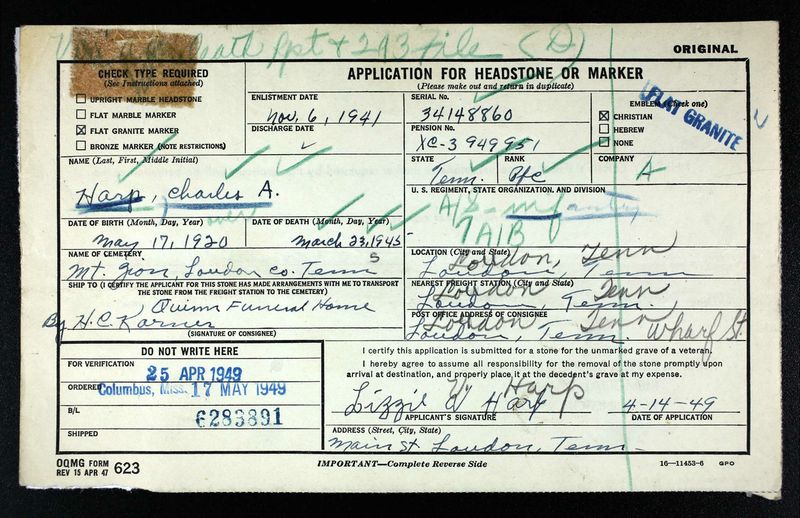 Death Rpt & 293 File (D)
ORIGINAL
CHECK TYPE REQUIRED
(See Instructions attached)
UPRIGHT MARBLE HEADSTONE
FLAT MARBLE MARKER
☒ FLAT GRANITE MARKER
BRONZE MARKER (NOTE RESTRICTIONS)
APPLICATION FOR HEADSTONE OR MARKER
(Please make out and return in duplicate)
ENLISTMENT DATE
Nov. 6, 1941
DISCHARGE DATE
SERIAL No.
34148860
PENSION No.
XC-3 949951
EMBLEM (Check one)
☒ CHRISTIAN
HEBREW
NONE
FLAT GRANITE
NAME (Last, First, Middle Initial)
Harp, Charles A.
STATE
Tenn.
RANK
Pfc
COMPANY
A
U. S. REGIMENT, STATE ORGANIZATION, AND DIVISION
Infantry
7 AIB
DATE OF BIRTH (Month, Day, Year)
May 17, 1920
DATE OF DEATH (Month, Day, Year)
March 23, 1945
5
NAME OF CEMETERY
Mt. Zion, Loudon Co. Tenn
LOCATION (City and State)
Loudon, Tenn
Loudon, Tenn
SHIP TO (I CERTIFY THE APPLICANT FOR THIS STONE HAS MADE ARRANGEMENTS WITH ME TO TRANSPORT
THE STONE FROM THE FREIGHT STATION TO THE CEMETERY)
Quinn Funeral Home
By H. C. Karnes
(SIGNATURE OF CONSIGNEE)
NEAREST FREIGHT STATION (City and State)
Loudon Tenn
Loudon Tenn.
POST OFFICE ADDRESS OF CONSIGNEE
Loudon Tenn Wharf St
Loudon, Tenn.
DO NOT WRITE HERE
FOR VERIFICATION
25 APR 1949
ORDERED
Columbus, Miss. 17 MAY 1949
B/L
6283891
SHIPPED
I certify this application is submitted for a stone for the unmarked grave of a veteran.
I hereby agree to assume all responsibility for the removal of the stone promptly upon
arrival at destination, and properly place it at the decedent's grave at my expense.
W. Harp
Lizzie W Harp
4-14-49
APPLICANT'S SIGNATURE
DATE OF APPLICATION
ADDRESS (Street, City, State)
Main St. Loudon, Tenn.
OQMG FORM
REV 15 APR 47 623
IMPORTANT—Complete Reverse Side
16—11453-6 GPO